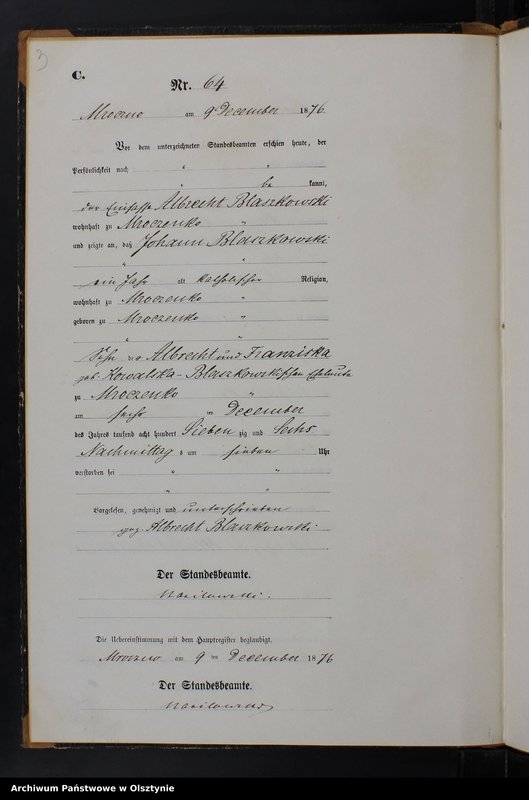 3
C.
Nr. 64
Mroczno am 9 December 1876
Vor dem unterzeichneten Standesbeamten erschien heute, der
Persönlichkeit nach
be kannt,
der Einsasse Albrecht Blaszkowski
wohnhaft zu Mroczenko
und zeigte an, daß Johann Blaszkowski
ein Jahr alt katholischer Religion,
wohnhaft zu Mroczenko
geboren zu Mroczenko
Sohn Albrecht und Franziska
geb. Kowalska-Blaszkowskischen Eheleute
zu Mroczenko
am sechs ten December
des Jahres tausend acht hundert Sieben zig und Sechs
Nachmittag s um sieben Uhr
verstorben sei
Vorgelesen, genehmigt und unterschrieben
gez. Albrecht Blaszkowski
Der Standesbeamte.
Die Uebereinstimmung mit dem Hauptregister beglaubigt.
Mroczno am 9 ten December 1876
Der Standesbeamte.
Archiwum Państwowe w Olsztynie